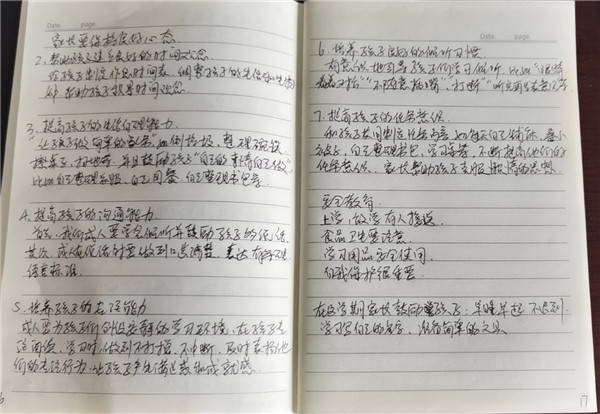 Date. page.
家长要保持良好心态
2. 帮助孩子建立良好的时间观念
给孩子制定作息时间表,
帮助孩子
3. 提高孩子的生活自理能力
让孩子做简单的家务,如倒垃圾,整理碗筷
擦桌子,扫地等,并且鼓励孩子“自己的事情自己做”
比如自己整理衣服,自己图画,自己整理书包等
4. 提高孩子的沟通能力
首先,我们成人要学会倾听并鼓励孩子的倾诉
其次,成人在说话时要做到口齿清楚,表达
语言标准.
5. 培养孩子的专注能力
成人要为孩子们创设安静的学习环境,在孩子专
注阅读,学习时,做到不打扰,不中断,及时表扬他
们的专注行为,让孩子产生满足感和成就感.
Date. page.
6. 培养孩子良好的倾听习惯
有意识地引导孩子们学习倾听,比如“眼睛
看着对方”“不随意插嘴”,打断”“听完再发表意见等
7. 提高孩子的任务意识
和孩子共同制定任务内容,如每天自己铺床,叠小
被子,自己整理书包,学习等,不断提高他们的
任务意识. 家长帮助孩子克服懒惰的思想
安全教育
上学,放学有人接送
食品卫生要注意
学习用品安全使用
自我保护很重要.
在这学期家长鼓励孩子:早睡早起 不迟到.
学习写自己的名字,准备简单的文具
17